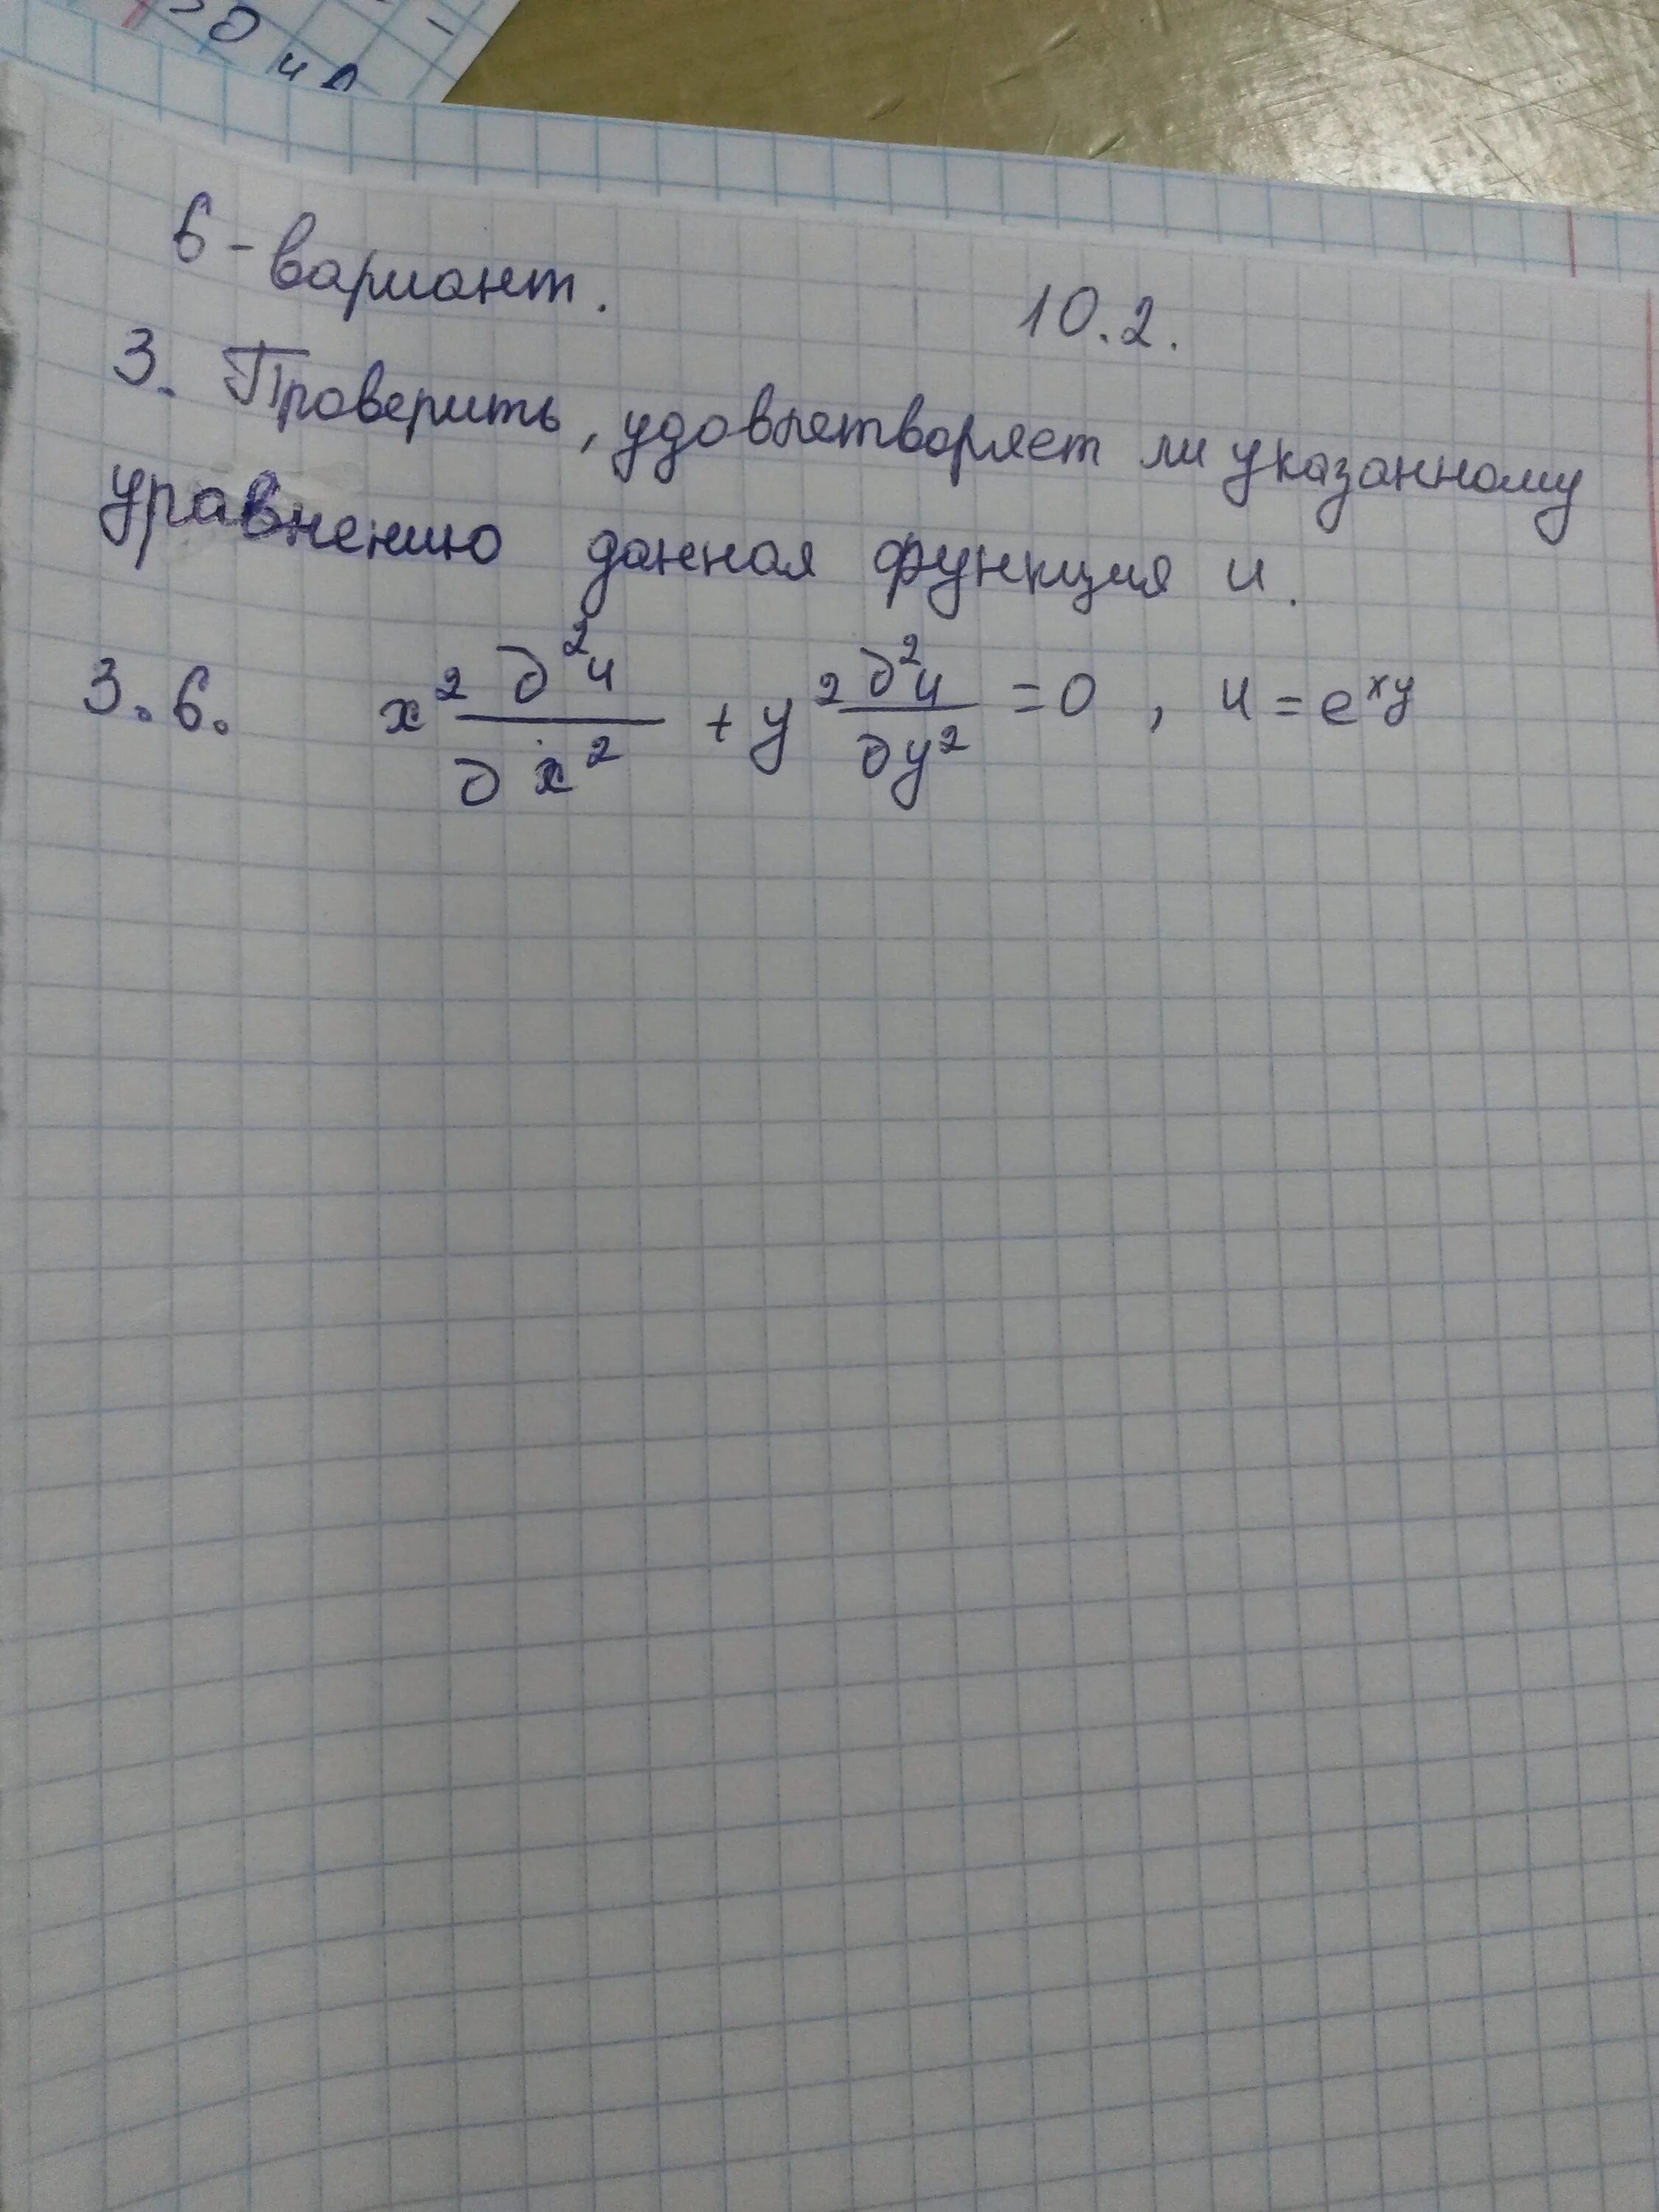 6-вариант.
10.2.
3. Проверить, удовлетворяет ли указанному
уравнению данная функция u.
3.6. x² ∂²u/∂x² + y² ∂²u/∂y² = 0, u = e^xy